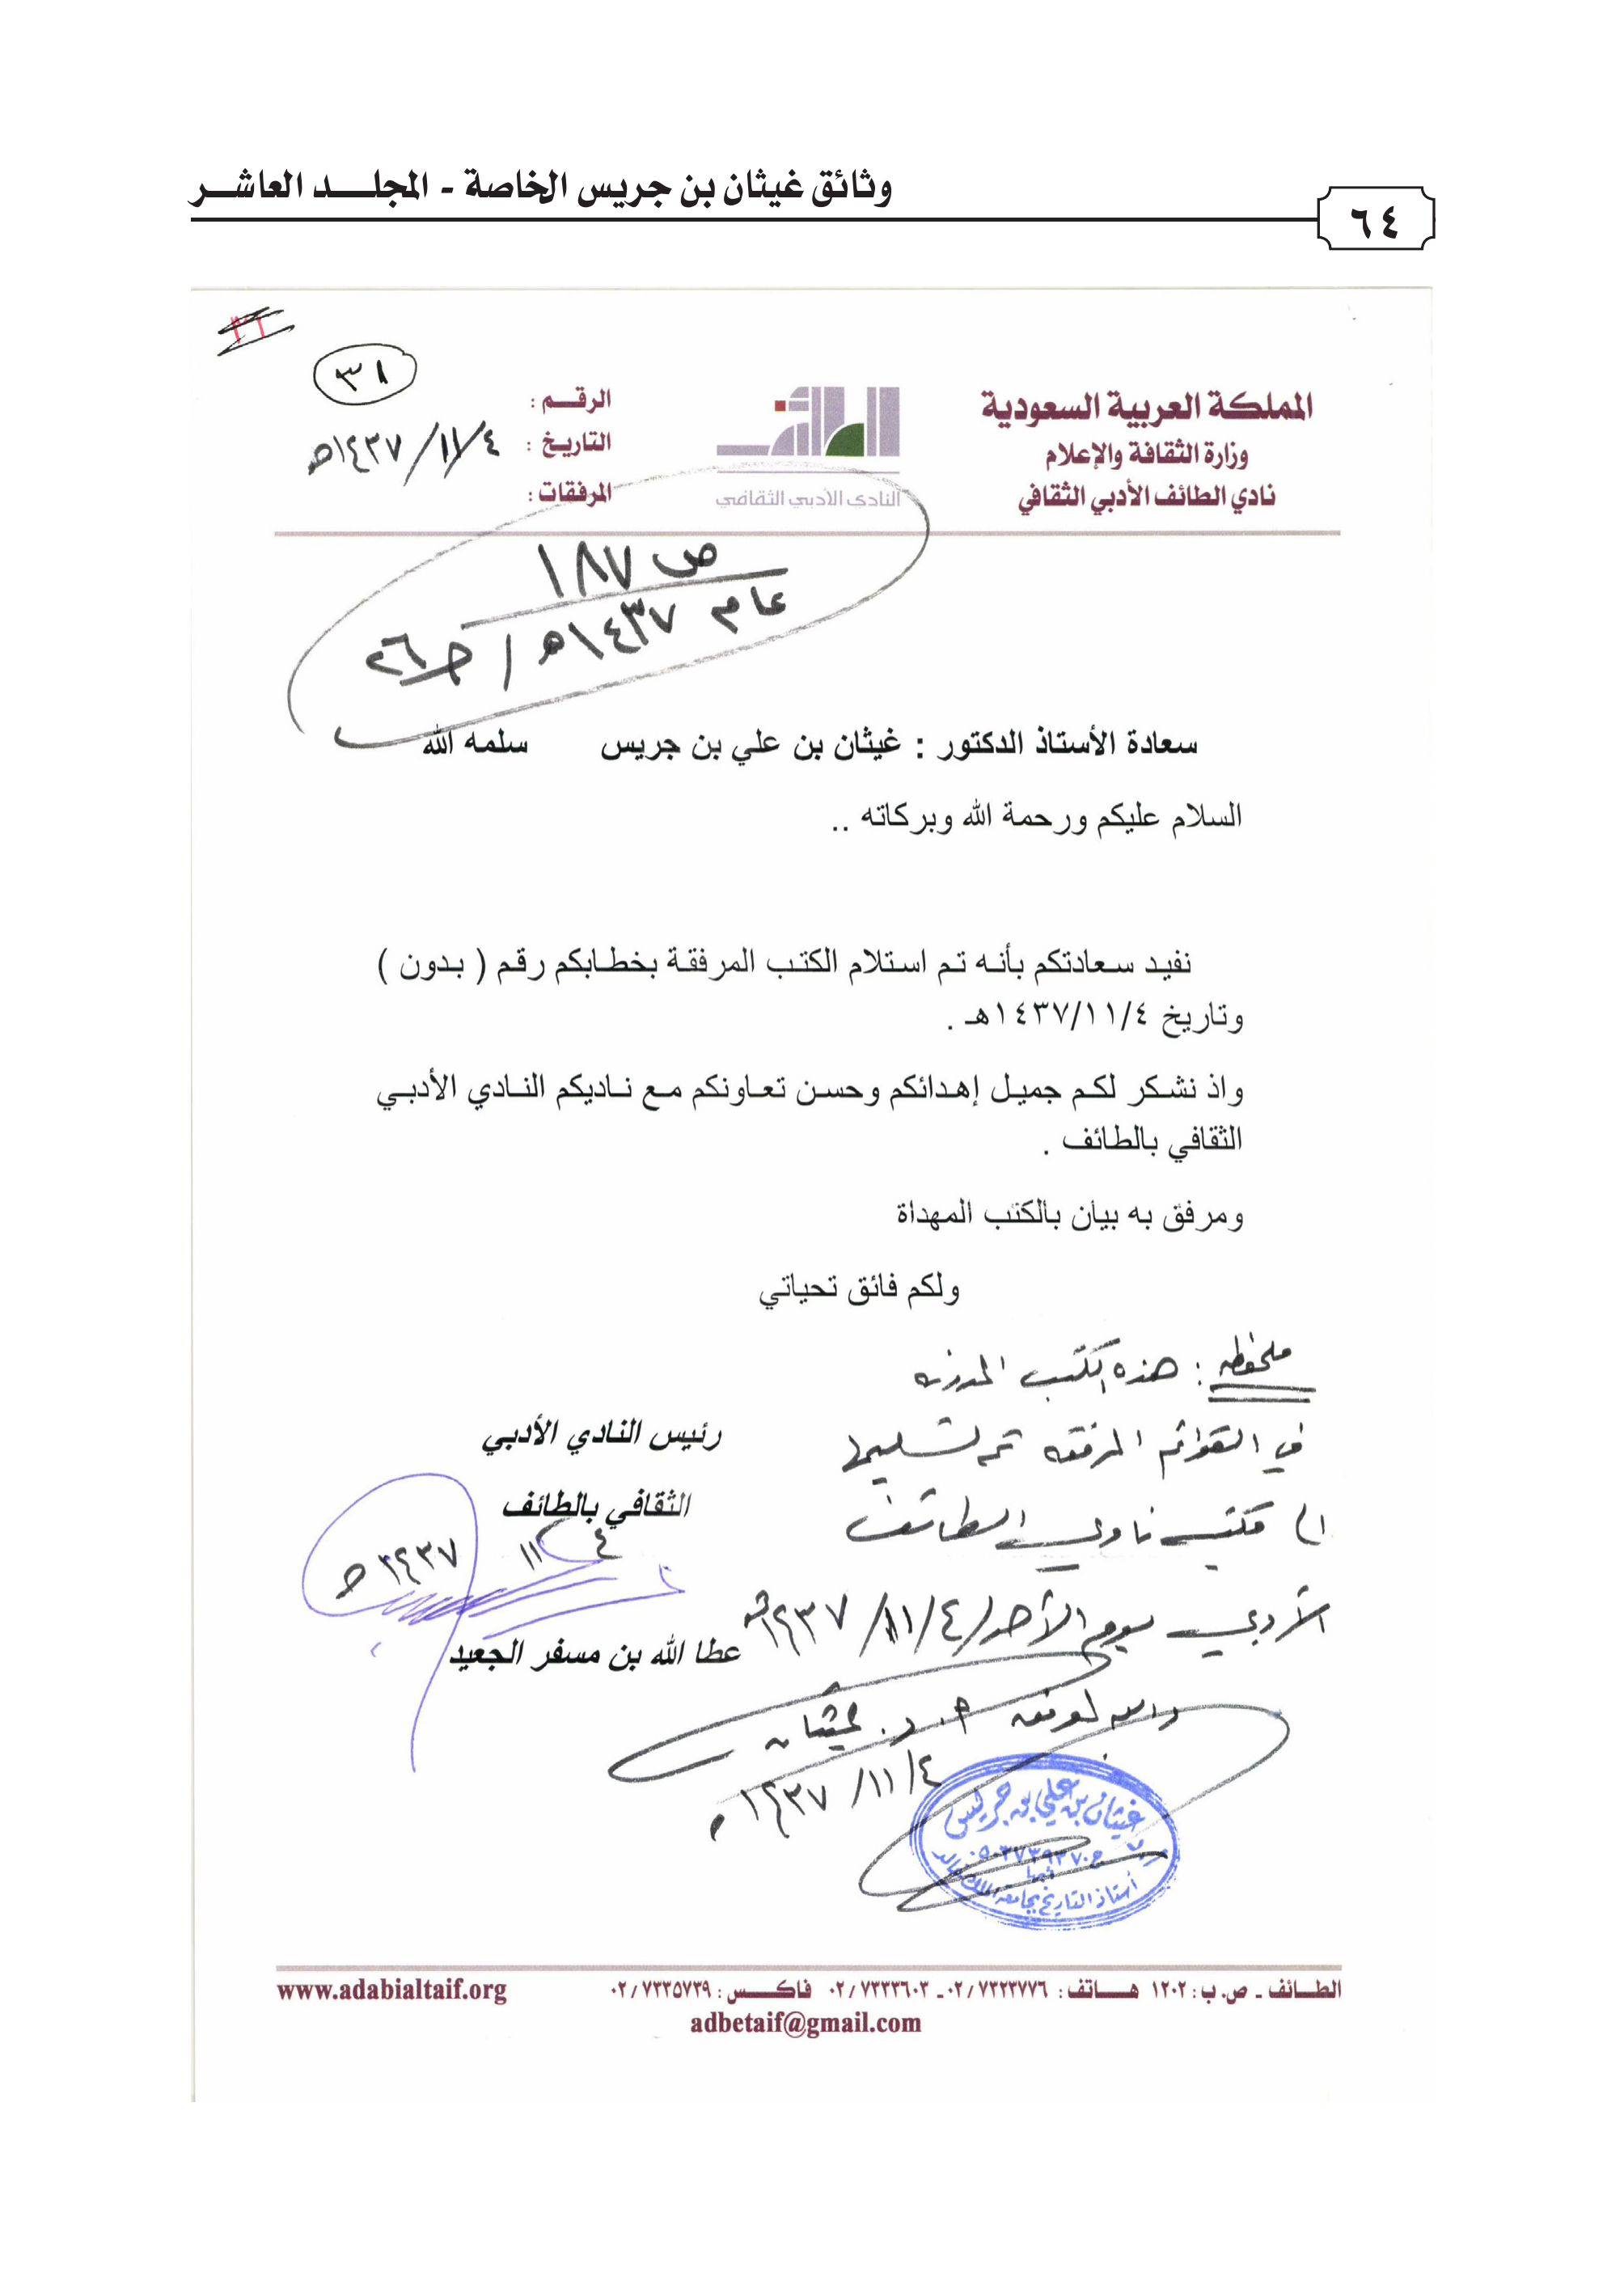 وثائق غيثان بن جريس الخاصة - المجلـــد العاشــر
٦٤
٣١
المملكة العربية السعودية
وزارة الثقافة والإعلام
نادي الطائف الأدبي الثقافي
الطائف
النادي الأدبي الثقافي
الرقـــم :
التاريخ : ١٤٣٧/١١/٤هـ
المرفقات :
ص ١٨٧
عام ١٤٣٧هـ / حـ ٢٦
سعادة الأستاذ الدكتور : غيثان بن علي بن جريس سلمه الله
السلام عليكم ورحمة الله وبركاته ..
نفيد سعادتكم بأنه تم استلام الكتب المرفقة بخطابكم رقم ( بدون )
وتاريخ ١٤٣٧/١١/٤هـ .
واذ نشكر لكم جميل إهدائكم وحسن تعاونكم مع ناديكم النادي الأدبي
الثقافي بالطائف .
ومرفق به بيان بالكتب المهداة
ولكم فائق تحياتي
ملحوظه : هذه الكتب المدونه
في القوائم المرفقه تم تسليمها
مكتب نادي الطائف
الأدبي يوم الأحد ١٤٣٧/١١/٤هـ
والله الموفق أ.د. غيثان
١٤٣٧/١١/٤هـ
رئيس النادي الأدبي
الثقافي بالطائف
٤ ١١ ١٤٣٧هـ
عطا الله بن مسفر الجعيد
غيثان بن علي بن جريس
أبها
أستاذ التاريخ بجامعة الملك خالد
الطــائف ـ ص.ب : ١٢٠٢ هـــاتف : ٠٢/٧٣٢٣٧٧٦ ـ ٠٢/٧٣٣٣٦٠٣ فاكـــس : ٠٢/٧٣٣٥٧٣٩
www.adabialtaif.org
adbetaif@gmail.com